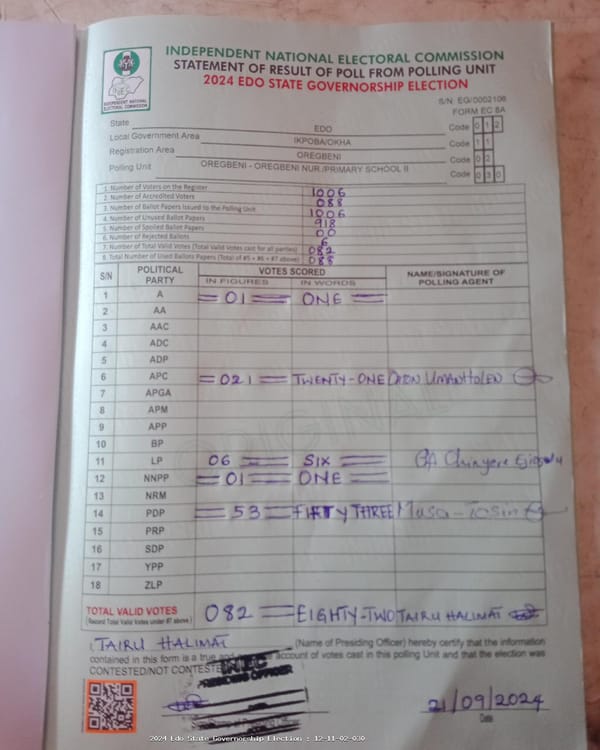 INDEPENDENT NATIONAL ELECTORAL COMMISSION
STATEMENT OF RESULT OF POLL FROM POLLING UNIT
2024 EDO STATE GOVERNORSHIP ELECTION
INEC
INDEPENDENT NATIONAL ELECTORAL COMMISSION
S/N EG/0002106
FORM EC 8A
State EDO Code 0 1 2
Local Government Area IKPOBA/OKHA Code 1 1
Registration Area OREGBENI Code 0 2
Polling Unit OREGBENI - OREGBENI NUR./PRIMARY SCHOOL II Code 0 3 0
1. Number of Voters on the Register 1006
2. Number of Accredited Voters 088
3. Number of Ballot Papers Issued to the Polling Unit 1006
4. Number of Unused Ballot Papers 918
5. Number of Spoiled Ballot Papers 00
6. Number of Rejected Ballots 6
7. Number of Total Valid Votes (Total Valid Votes cast for all parties) 082
8. Total Number of Used Ballots Papers (Total of #5 + #6 + #7 above) 088
S/N POLITICAL PARTY VOTES SCORED NAME/SIGNATURE OF POLLING AGENT
IN FIGURES IN WORDS
1 A 01 ONE
2 AA
3 AAC
4 ADC
5 ADP
6 APC 021 TWENTY-ONE
7 APGA
8 APM
9 APP
10 BP
11 LP 06 SIX
12 NNPP 01 ONE
13 NRM
14 PDP 53 FIFTY THREE Musa-
15 PRP
16 SDP
17 YPP
18 ZLP
TOTAL VALID VOTES 082 EIGHTY-TWO TAIRU HALIMAT
(Record Total Valid Votes under #7 above)
TAIRU HALIMAT (Name of Presiding Officer) hereby certify that the information
contained in this form is a true and account of votes cast in this polling Unit and that the election was
CONTESTED/NOT CONTESTED
INEC
PRESIDING OFFICER
21/09/2024
Date
2024 Edo State Governorship Election : 12-11-02-030